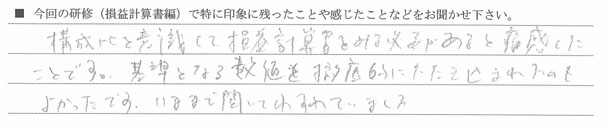 ■ 今回の研修（損益計算書編）で特に印象に残ったことや感じたことなどをお聞かせ下さい。
構成比を意識して損益計算書をみる必要があると痛感した
ことです。基準となる数値を徹底的にたたき込まれたのも
よかったです。いままで聞いてもわすれていました